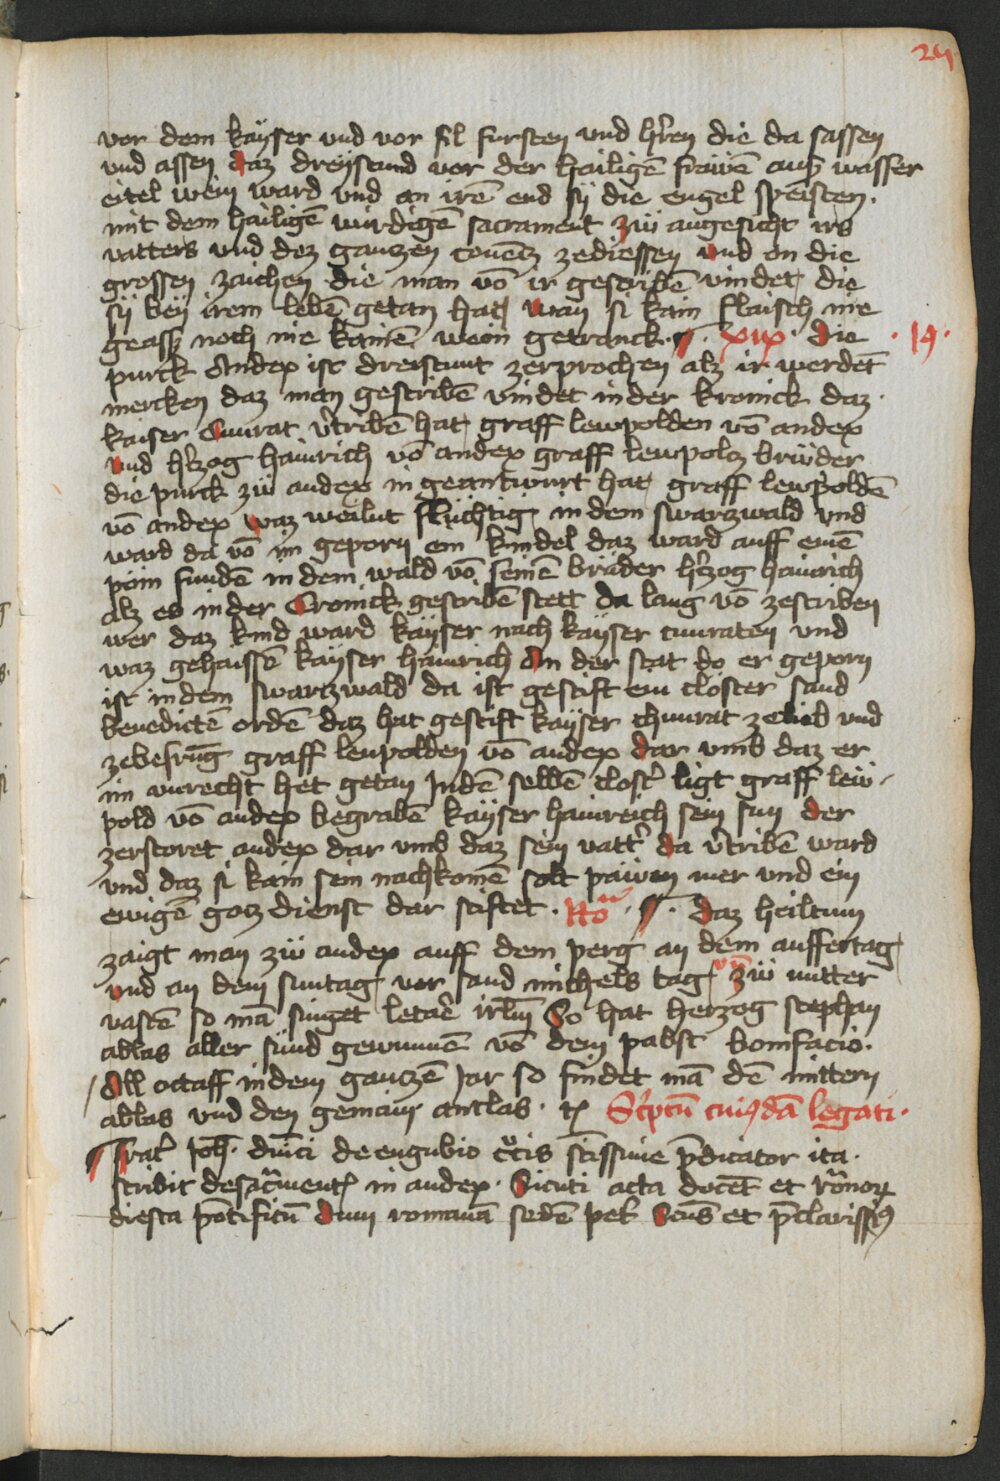 24
vor dem kayser vnd vor fil fursten vnd hr̄en die da sassen
vnd assen daz dreystund vor der hailigē frawē auß wasser
eitel wein ward vnd an irē end sy die engel speisten.
mit dem hailigē wirdigē sacrament zü angesicht irs
vatters vnd dez ganzen conentz zediessen vnd on die
grossen zaichen die man vō ir gescribē vindet die
sy bey irem lebē getan hat wan si kain flaisch nie
geasß noch nie kainē wein getranck. ¶. xix. die . 19.
purck Andex ist dreistunt zerprochen alz ir werdēt
mercken daz man gescribē vindet in der kronick daz.
kaiser Cunrat v̄tribē hat graff lewpolden vō andex
vnd h̄zog hainrich vō andex graff lewpolcz brüder
die purck zü andex in geantwurt hat graff lewpoldē
vō andex waz weilut flüchtig in dem swarzwald vnd
ward da vō im geporn ein kindel daz ward auff einē
poim fundē in dem wald vō seinē bräder h̄zog hainrich
alz es in der Cronick gescribē stett da lang vō zescriben
wer daz kind ward kayser nach kayser cunraten vnd
waz gehaissē kayser hainrich An der stat do er geporn
ist in dem swartzwald da ist gestift ein closter sand
benedictē ordē daz hat gestift kayser chunrat zelieb vnd
zebesrūg graff leupolden vō andex dar vmb daz er
im vnrecht het getan Jndē selbē clost̄ ligt graff lew-
pold vō andex begrabē kayser hainreich sein sun der
zerstoret andex dar vmb daz sein vatt̄ da v̄tribē ward
vnd daz si kain sein nachkomē solt päwen mer vnd ein
ewigē gotz dienst dar stiftet. ¶. daz heiltum
zaigt man zü andex auff dem perg an dem auffertag
vnd an dem suntag vor sand michels tag vn̄ zü mitter
vastē so mā singet letarē irl̄m So hat herzog stephan
ablas aller sünd gewunnē vō dem pabst bonifacio.
All octaff in dem ganczē Jar so findet mā dē mittern
ablas vnd den gemain antlas. Sc̄ptū cuiꝰdā legati.
¶ Frat̄ Joh̄. dn̄ici de eugubio c̄tis sc̄issime p̄dicator ita.
scribit de sac̄mentꝭ in andex. Sicuti acta docēt et rōnoꝝ
diesta p̄otificū dum romanā sedē pet̄ Scūs et p̄clarissꝰ